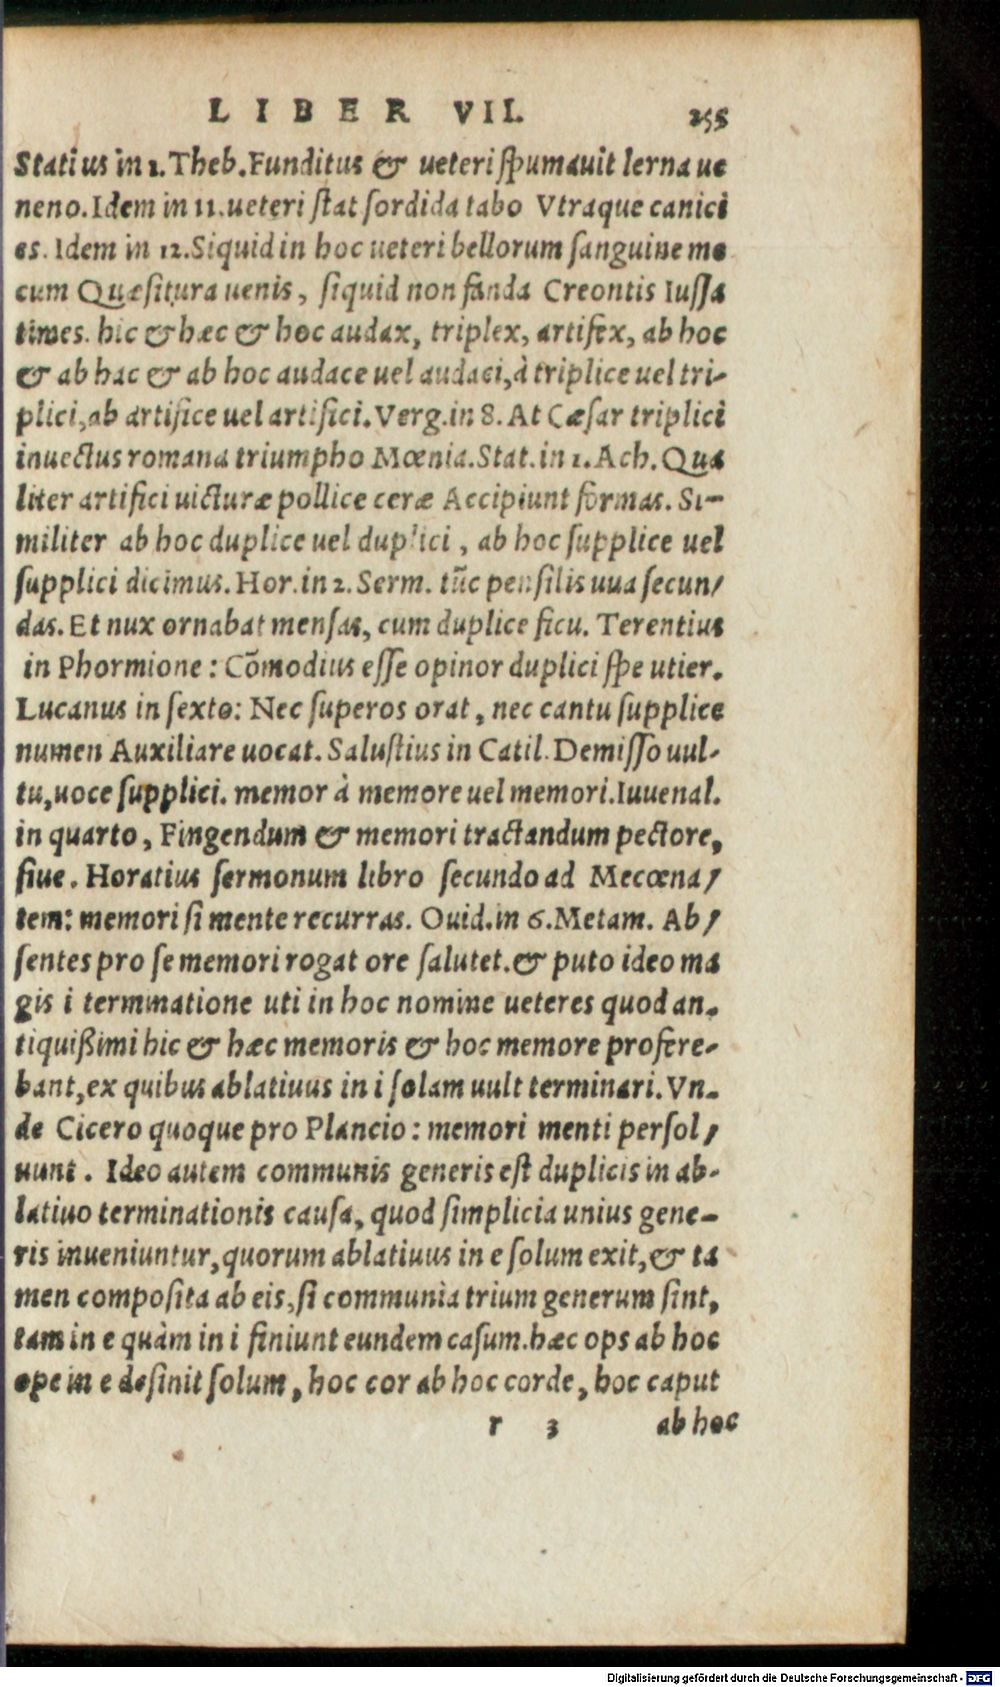 LIBER VII. 255
Statius in 1. Theb. Funditus & ueteri ſpumauit lerna ue
neno. Idem in 11. ueteri ſtat ſordida tabo Vtraque canici
es. Idem in 12. Siquid in hoc ueteri bellorum ſanguine me
cum Quæſitura uenis, ſiquid non fanda Creontis Iuſſa
times. hic & hæc & hoc audax, triplex, artifex, ab hoc
& ab hac & ab hoc audace uel audaci, à triplice uel tri-
plici, ab artifice uel artifici. Verg. in 8. At Cæſar triplici
inuectus romana triumpho Mœnia. Stat. in 1. Ach. Qua
liter artifici uicturæ pollice ceræ Accipiunt formas. Si-
militer ab hoc duplice uel duplici, ab hoc ſupplice uel
ſupplici dicimus. Hor. in 2. Serm. tūc penſilis uua ſecun/
das. Et nux ornabat menſas, cum duplice ficu. Terentius
in Phormione: Cōmodius eſſe opinor duplici ſpe utier.
Lucanus in ſexto: Nec ſuperos orat, nec cantu ſupplice
numen Auxiliare uocat. Saluſtius in Catil. Demiſſo uul-
tu, uoce ſupplici. memor à memore uel memori. Iuuenal.
in quarto, Fingendum & memori tractandum pectore,
ſiue. Horatius ſermonum libro ſecundo ad Mecœna/
tem: memori ſi mente recurras. Ouid. in 6. Metam. Ab/
ſentes pro ſe memori rogat ore ſalutet. & puto ideo ma
gis i terminatione uti in hoc nomine ueteres quod an-
tiquißimi hic & hæc memoris & hoc memore profere-
bant, ex quibus ablatiuus in i ſolam uult terminari. Vn-
de Cicero quoque pro Plancio: memori menti perſol/
uunt. Ideo autem communis generis eſt duplicis in ab-
latiuo terminationis cauſa, quod ſimplicia unius gene-
ris inueniuntur, quorum ablatiuus in e ſolum exit, & ta
men compoſita ab eis, ſi communia trium generum ſint,
tam in e quàm in i finiunt eundem caſum. hæc ops ab hoc
ope in e deſinit ſolum, hoc cor ab hoc corde, hoc caput
r 3 ab hoc
Digitalisierung gefördert durch die Deutsche Forschungsgemeinschaft - DFG